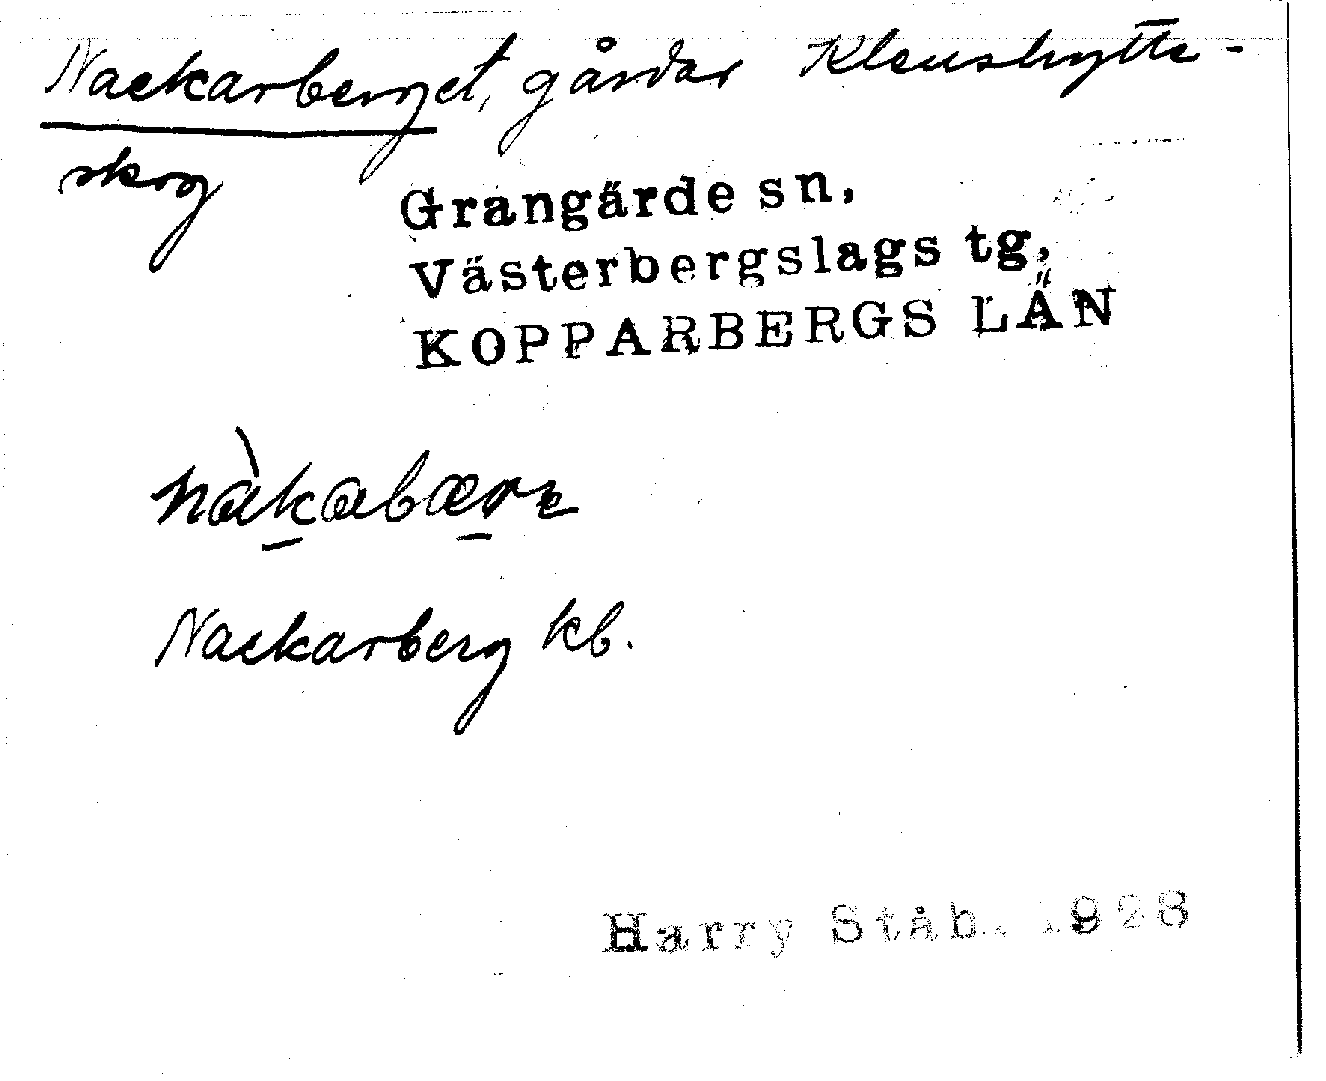 Nackarberget, gårdar Klenshytte-
skog
Grangärde sn,
Västerbergslags tg,
KOPPARBERGS LÄN
Nackarberg kb.
Harry Ståhl 1928